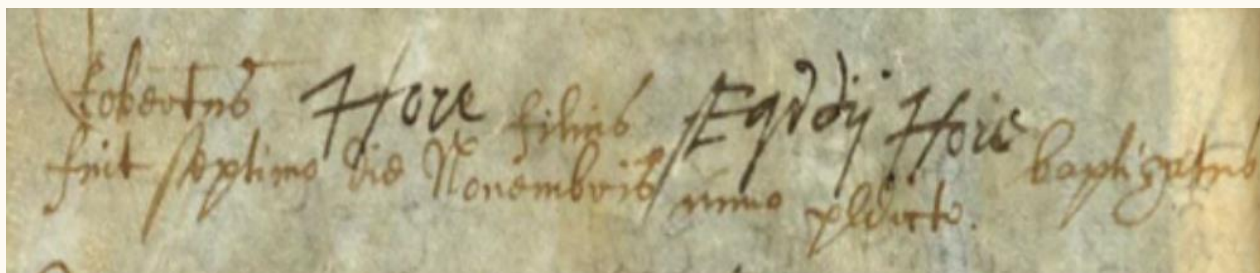 Robertus Hore filius Egidij Hore baptizatus
fuit septimo die Novembris anno p̱dicto.